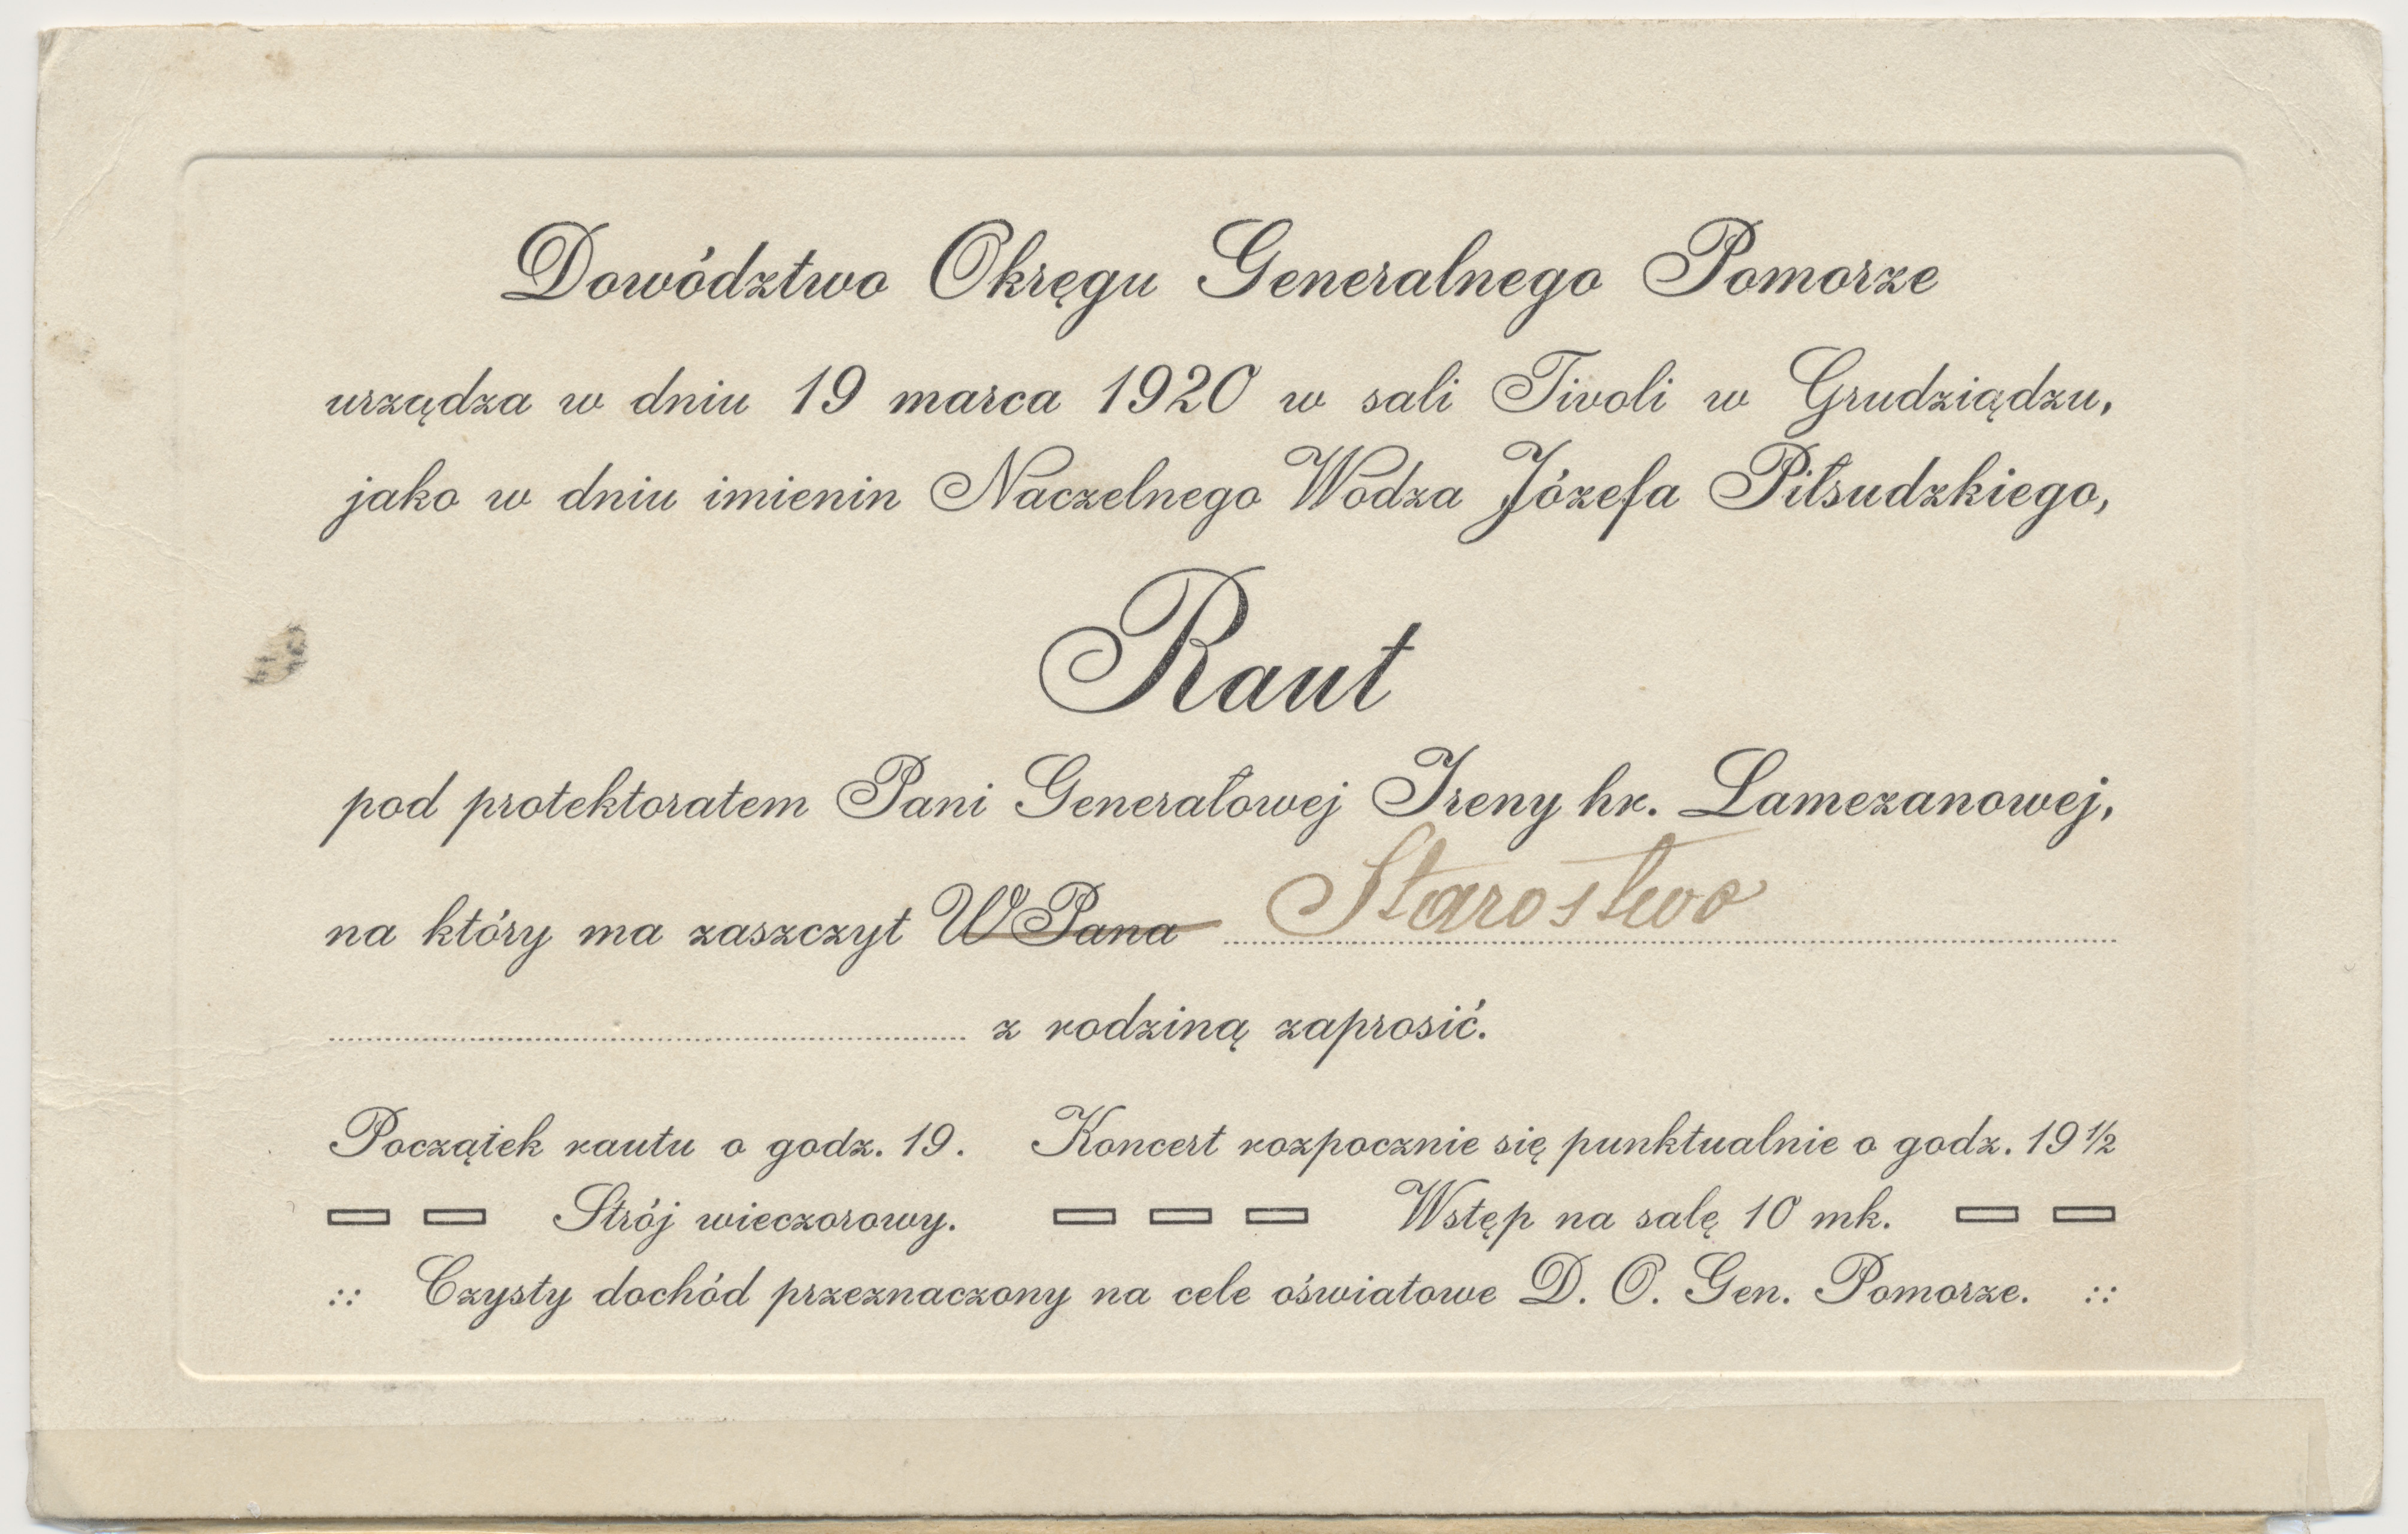 Dowództwo Okręgu Generalnego Pomorze
urządza w dniu 19 marca 1920 w sali Tivoli w Grudziądzu,
jako w dniu imienin Naczelnego Wodza Józefa Piłsudzkiego,
Raut
pod protektoratem Pani Generałowej Ireny hr. Lamezanowej,
na który ma zaszczyt WPana Starostwo
z rodziną zaprosić.
Początek rautu o godz. 19. Koncert rozpocznie się punktualnie o godz. 19 ½
Strój wieczorowy. Wstęp na salę 10 mk.
:: Czysty dochód przeznaczony na cele oświatowe D. O. Gen. Pomorze. ::